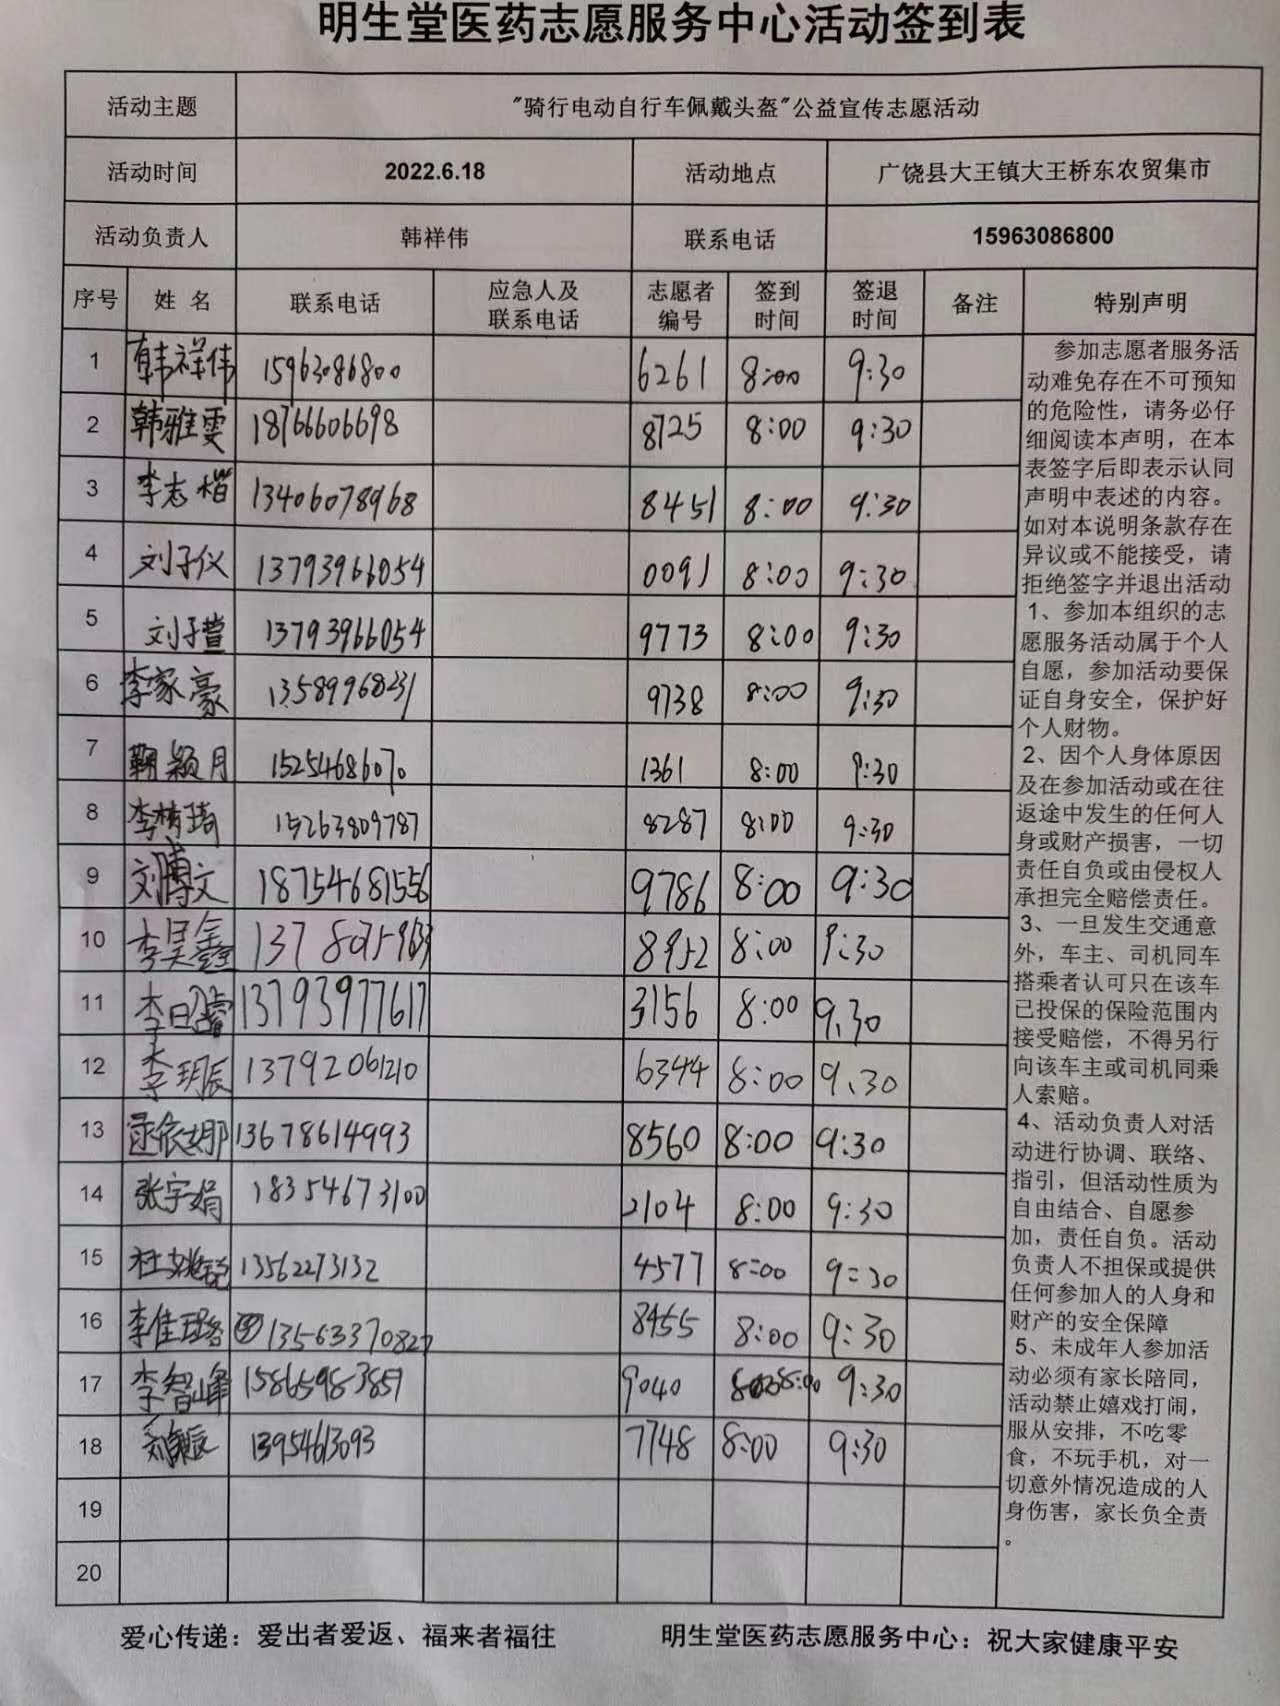 明生堂医药志愿服务中心活动签到表
活动主题 "骑行电动自行车佩戴头盔"公益宣传志愿活动
活动时间 2022.6.18 活动地点 广饶县大王镇大王桥东农贸集市
活动负责人 韩祥伟 联系电话 15963086800
序号 姓名 联系电话 应急人及联系电话 志愿者编号 签到时间 签退时间 备注 特别声明
1 韩祥伟 15963086800 6261 8:00 9:30
2 韩雅雯 18766606698 8725 8:00 9:30
3 李志楷 13406078968 8451 8:00 9:30
4 刘子仪 13793966054 0091 8:00 9:30
5 刘子萱 13793966054 9773 8:00 9:30
6 李家豪 13589968231 9738 8:00 9:30
7 颖月 15254686070 1361 8:00 9:30
8 李梓琦 15263809787 8287 8:00 9:30
9 刘博文 18754681556 9786 8:00 9:30
10 李昊鑫 8952 8:00 9:30
11 李 13793977617 3156 8:00 9.30
12 李玥辰 13792061210 6344 8:00 9.30
13 依娜 13678614993 8560 8:00 9:30
14 张宇娟 18354673100 2104 8:00 9:30
15 杜 13562273132 4577 8:00 9:30
16 李佳 13563370827 8455 8:00 9:30
17 李智峰 15865983857 9040 8:00 9:30
18 13954613093 7748 8:00 9:30
19
20
参加志愿者服务活
动难免存在不可预知
的危险性，请务必仔
细阅读本声明，在本
表签字后即表示认同
声明中表述的内容。
如对本说明条款存在
异议或不能接受，请
拒绝签字并退出活动
1、参加本组织的志
愿服务活动属于个人
自愿，参加活动要保
证自身安全，保护好
个人财物。
2、因个人身体原因
及在参加活动或在往
返途中发生的任何人
身或财产损害，一切
责任自负或由侵权人
承担完全赔偿责任。
3、一旦发生交通意
外，车主、司机同车
搭乘者认可只在该车
已投保的保险范围内
接受赔偿，不得另行
向该车主或司机同乘
人索赔。
4、活动负责人对活
动进行协调、联络、
指引，但活动性质为
自由结合、自愿参
加，责任自负。活动
负责人不担保或提供
任何参加人的人身和
财产的安全保障
5、未成年人参加活
动必须有家长陪同，
活动禁止嬉戏打闹，
服从安排，不吃零
食，不玩手机，对一
切意外情况造成的人
身伤害，家长负全责
。
爱心传递：爱出者爱返、福来者福往 明生堂医药志愿服务中心：祝大家健康平安